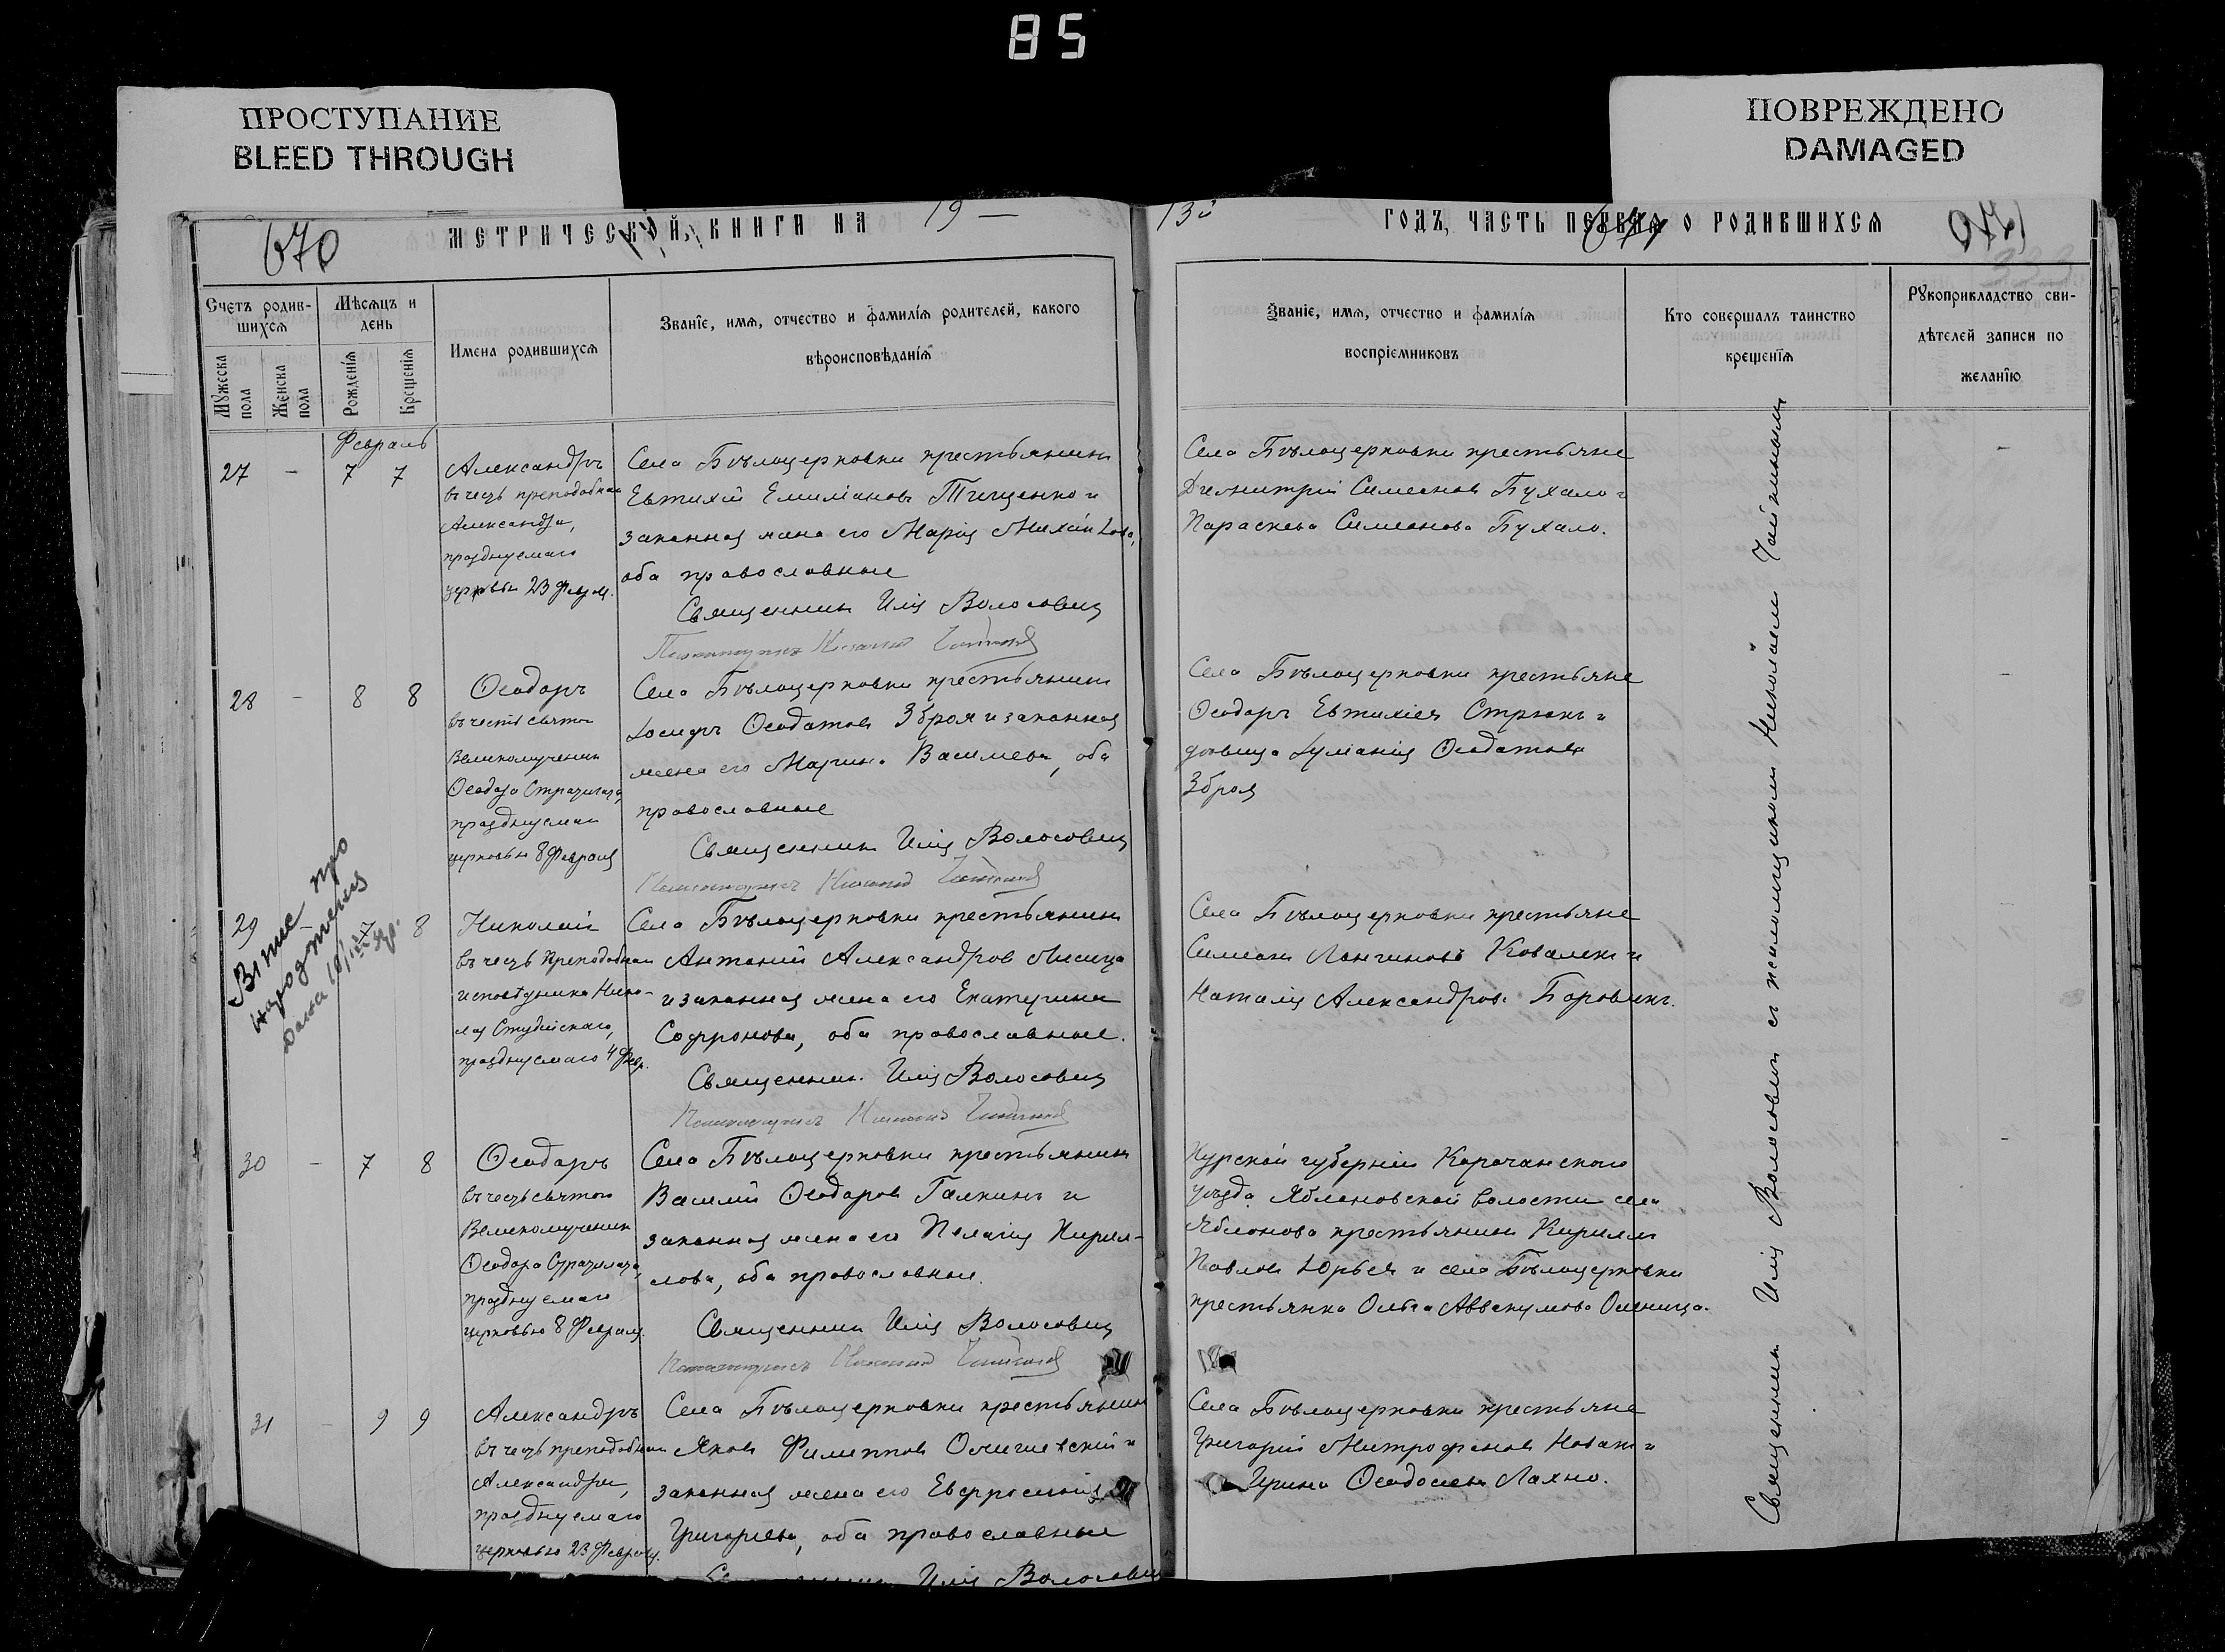 85
ПРОСТУПАНИЕ
BLEED THROUGH
ПОВРЕЖДЕНО
DAMAGED
670
МЕТРИЧЕСКОЙ КНИГИ НА 19 —
13 ГОДЪ, ЧАСТЬ ПЕРВАЯ О РОДИВШИХСЯ
Счетъ родив-
шихся
Мужеска пола
Женска пола
Мѣсяцъ и
день
Рожденія
Крещенія
Имена родившихся
Званіе, имя, отчество и фамилія родителей, какого
вѣроисповѣданія
Званіе, имя, отчество и фамилія
воспріемниковъ
Кто совершалъ таинство
крещенія
Рукоприкладство сви-
дѣтелей записи по
желанію
Февраль
27 — 7 7
Александръ
въ честь преподобнаго
Александра,
празднуемаго
церковью 23 Февраля.
Села Бѣлоцерковки крестьянинъ
Евтихій Емиліановъ Тищенко и
законная жена его Марія Михайлова,
оба православные
Священникъ Илія Волосовичъ
Села Бѣлоцерковки крестьяне
Димитрій Симеоновъ Бухало и
Параскева Симеонова Бухало.
—
28 — 8 8
Ѳеодоръ
въ честь святого
Великомученика
Ѳеодора Стратилата,
празднуемаго
церковью 8 Февраля
Села Бѣлоцерковки крестьянинъ
Іосифъ Ѳеодотовъ Зброя и законная
жена его Марина Васильева, оба
православные
Священникъ Илія Волосовичъ
Села Бѣлоцерковки крестьяне
Ѳеодоръ Евтихіевъ и
дѣвица Іуліанія Ѳеодотова
Зброя
—
29 — 7 8
Николай
въ честь Преподобнаго
исповѣдника Нико-
лая Студійскаго,
празднуемаго 4 Февр.
Села Бѣлоцерковки крестьянинъ
Антоній Александровъ Лисица
и законная жена его Екатерина
Софронова, оба православные.
Священникъ Илія Волосовичъ
Села Бѣлоцерковки крестьяне
Симеонъ Лонгиновъ и
Наталія Александрова
30 — 7 8
Ѳеодоръ
въ честь святого
Великомученика
Ѳеодора Стратилата,
празднуемаго
церковью 8 Февраля.
Села Бѣлоцерковки крестьянинъ
Василій Ѳеодоровъ Галкинъ и
законная жена его Пелагія Кирил-
лова, оба православные.
Священникъ Илія Волосовичъ
Курской губерніи Корочанскаго
уѣзда Яблоновской волости села
Яблонова крестьянинъ Кириллъ
Павловъ Юрьевъ и села Бѣлоцерковки
крестьянка Ольга Аввакумова
—
31 — 9 9
Александръ
въ честь преподобнаго
Александра,
празднуемаго
церковью 23 Февраля.
Села Бѣлоцерковки крестьянинъ
Яковъ Филипповъ и
законная жена его Евфросинія
Григорьева, оба православные
Илія Волосовичъ
Села Бѣлоцерковки крестьяне
Григорій Митрофановъ и
Ирина Ѳеодосіева Лахно.
Священникъ Илія Волосовичъ съ псаломщикомъ Николаемъ